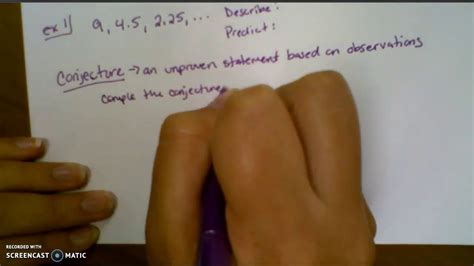 ex 1) 9, 4.5, 2.25, ... Describe:
Predict:
Conjecture → an unproven statement based on observations
comple the conjecture
RECORDED WITH
SCREENCAST MATIC